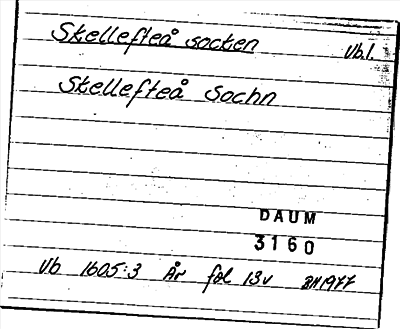 Skellefteå socken Vb.l.
Skellefteå Sochn
DAUM
3160
Vb 1605:3 År fol 13v BH1977